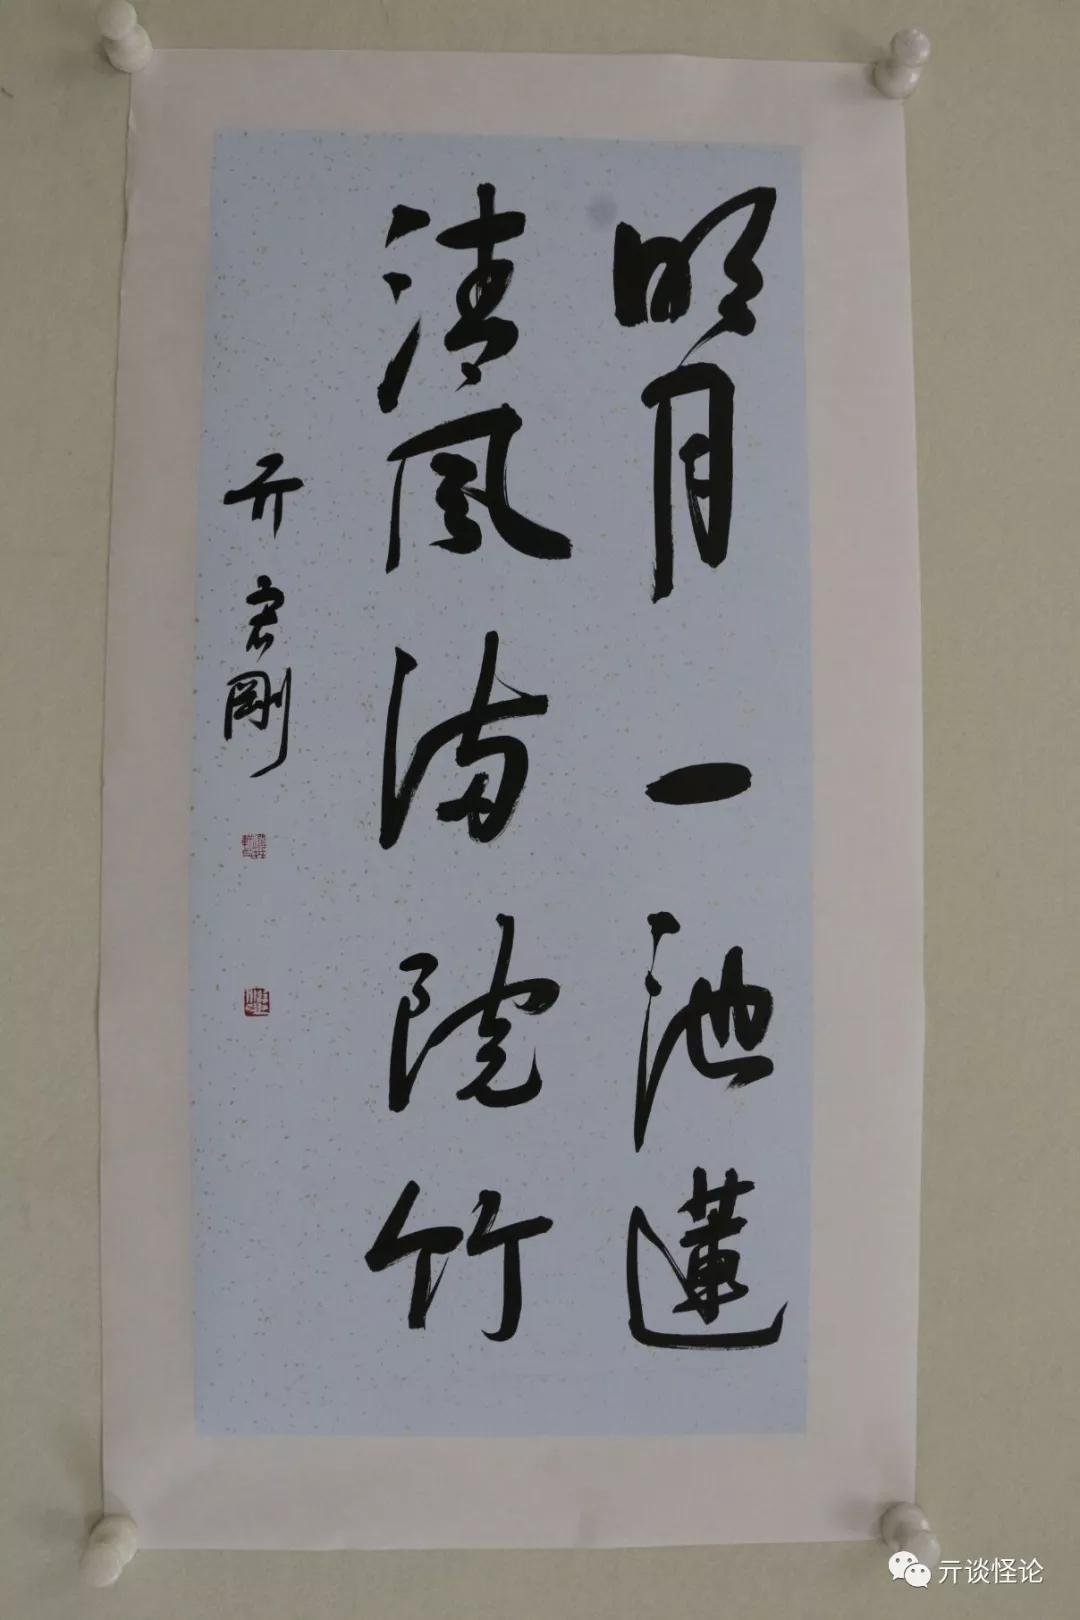 明月一池蓮
清风满院竹
亓宏剛
亓谈怪论